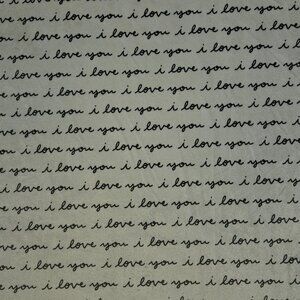 i love you i love you i love you
love you i love you i love you i love
you i love you i love you i love you
i love you i love you i love you
love you i love you i love you i
you i love you i love you i love you
i love you i love you i love you
love you i love you i love you i
you i love you i love you i love
i love you i love you i love you
love you i love you i love you i
you i love you i love you i love
i love you i love you i love you
love you i love you i love you i
you i love you i love you i love
i love you i love you i love you